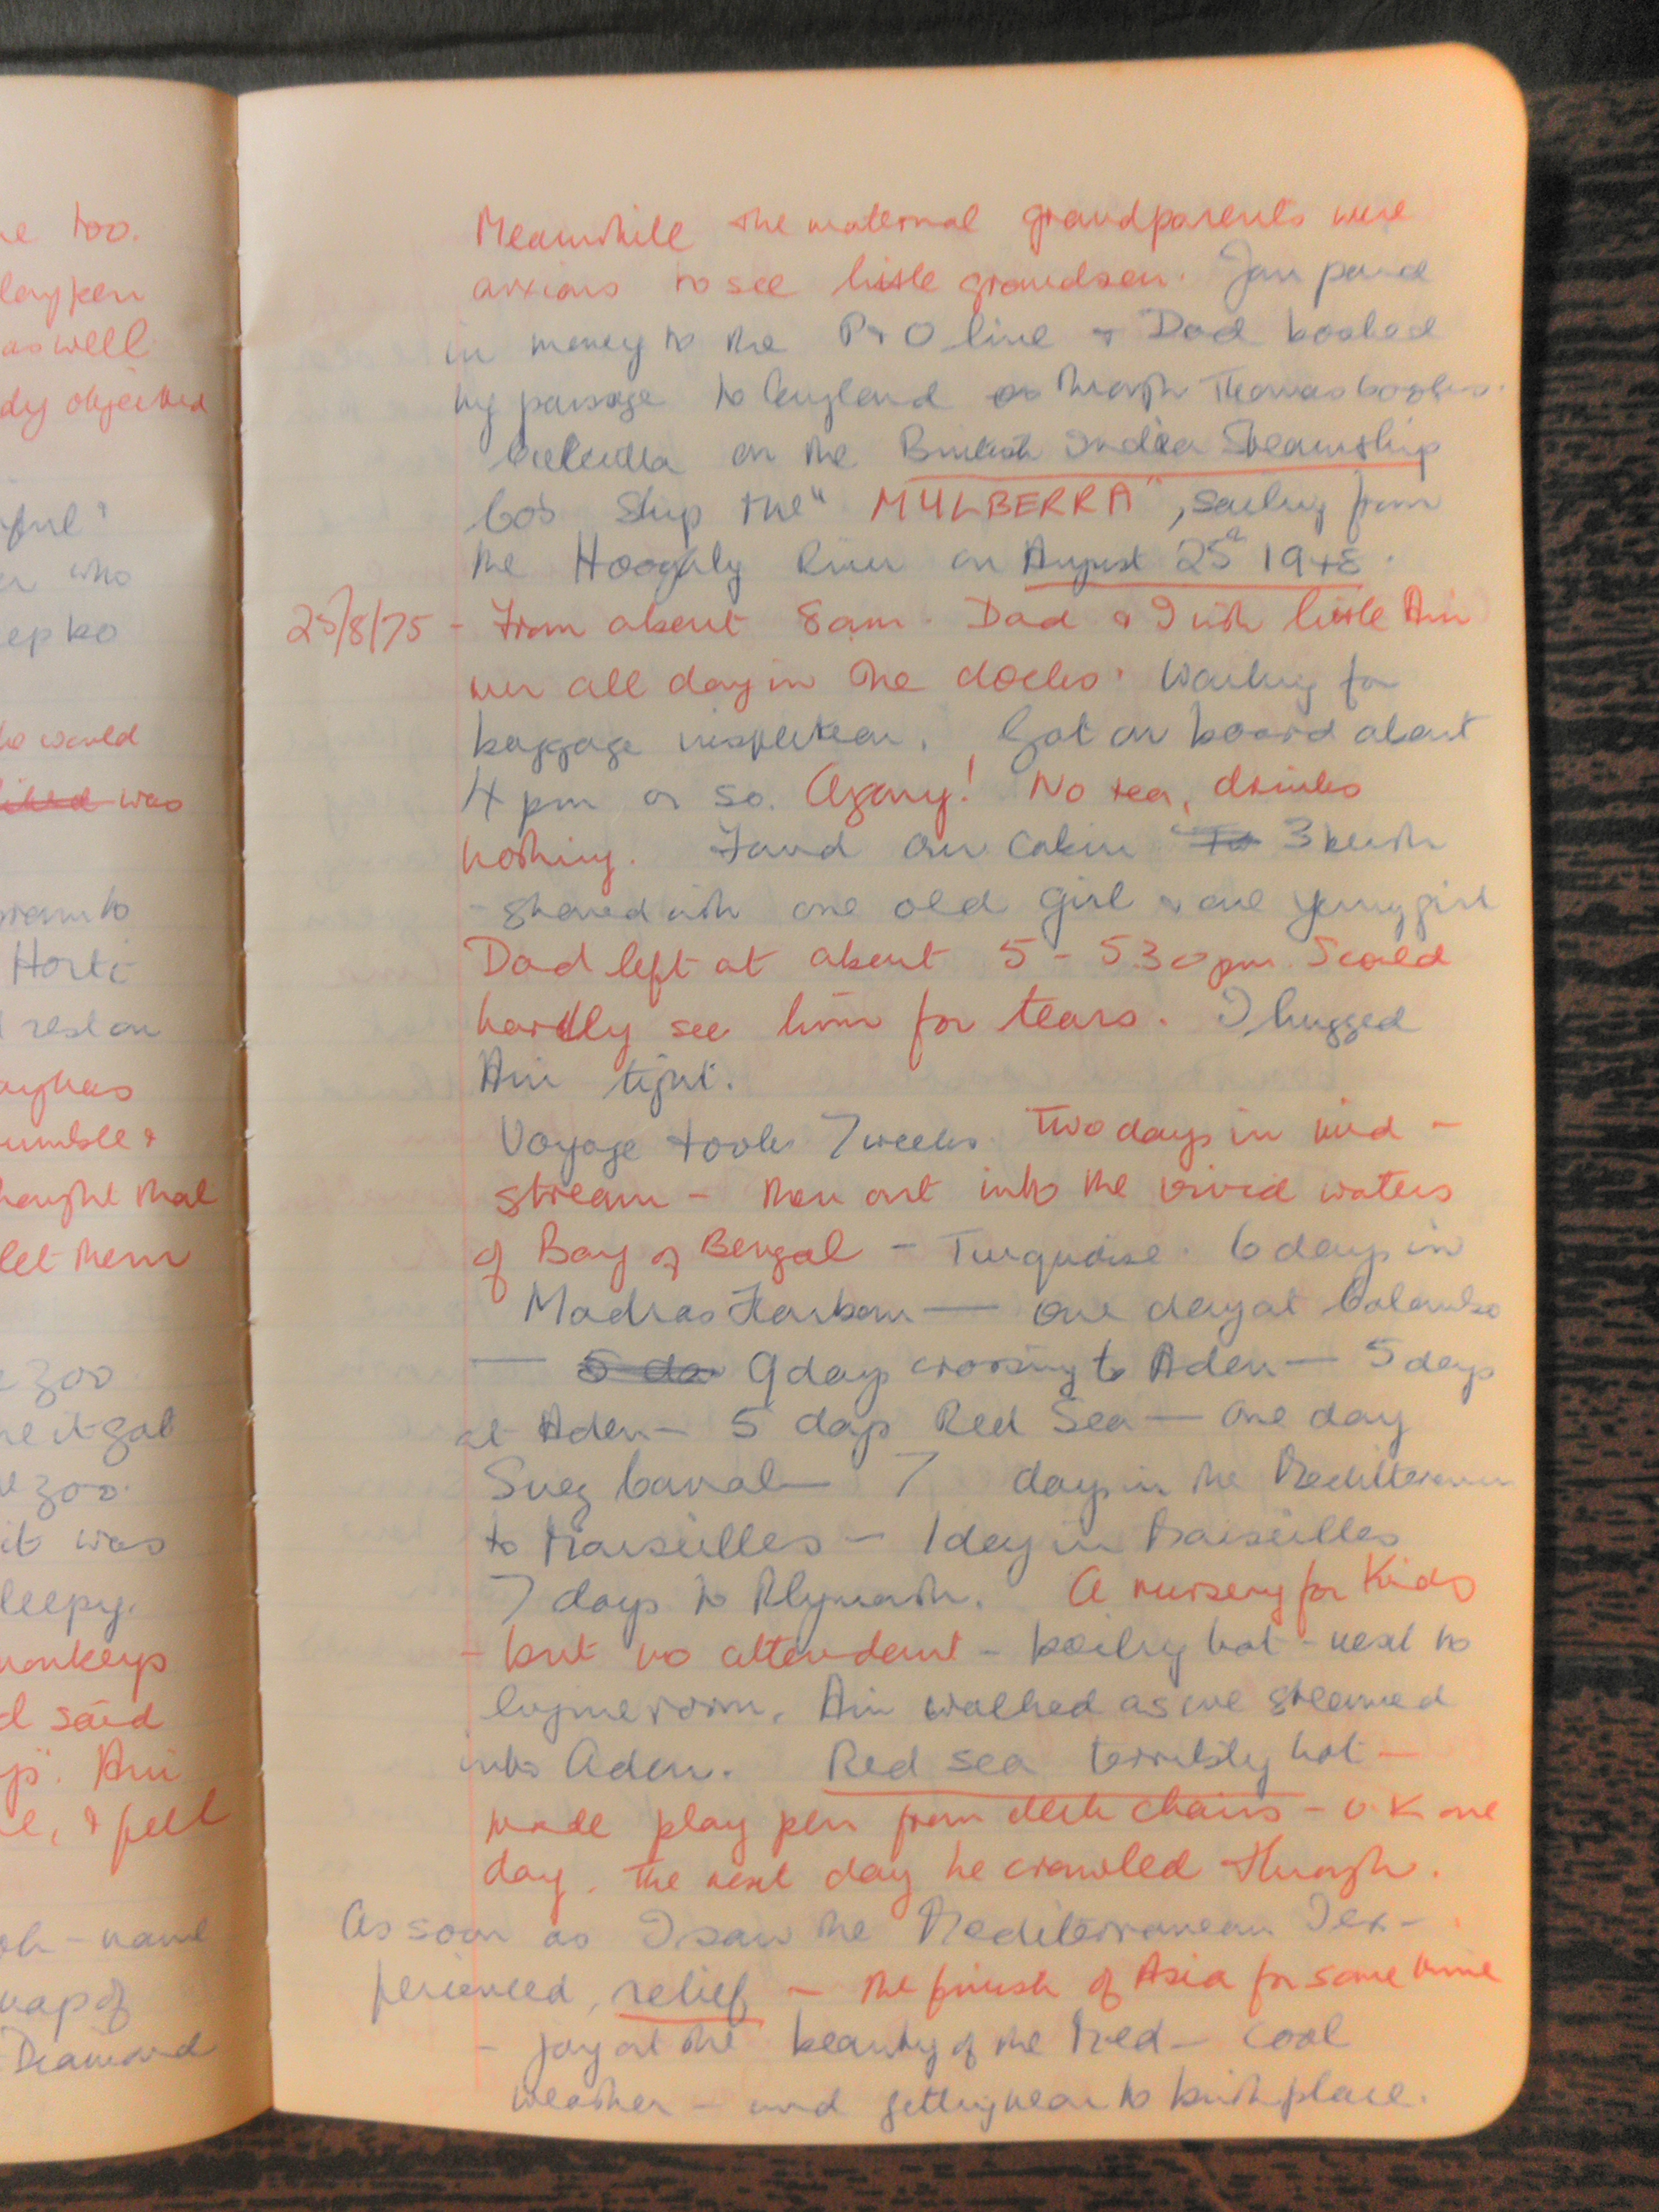 ne too.
laypen
as well
dy objected
who
ep to
would
was
Horti
rest on
umble &
thought that
let them
zoo
it got
zoo.
it was
leepy.
monkeys
d said
Ani
, & fell
name
map of
Diamond
Meanwhile the maternal grandparents were
anxious to see little grandson. Jan paid
in money to the P & O line & Dad booked
my passage to England through Thomas Cooks.
Calcutta on the British India Steamship
Co's Ship the "MULBERRA", sailing from
the Hooghly River on August 25th 1948.
25/8/75 - From about 8am. Dad & I with little Ani
all day in the docks. Waiting for
baggage inspection. Got on board about
4 pm or so. Agony! No tea, drinks
nothing. Found our cabin To 3 berth
- shared with one old girl & one young girl
Dad left at about 5 - 5.30 pm. I could
hardly see him for tears. I hugged
Ani tight.
Voyage took 7 weeks. Two days in mid -
stream - then out into the vivid waters
of Bay of Bengal - Turquoise. 6 days in
Madras Harbour — one day at Colombo
— 5 da 9 days crossing to Aden — 5 days
at Aden - 5 days Red Sea — One day
Suez Canal — 7 days in the Mediterranean
to Marseilles - 1 day in Marseilles
7 days to Plymouth. A nursery for Kids
- but no attendant - boiling hot - next to
engine room. Ani walked as we steamed
into Aden. Red Sea terribly hot —
made play pen from deck chairs - O.K one
day. The next day he crawled through.
As soon as I saw the Mediterranean I ex-
perienced, relief - the finish of Asia for some time
- joy at the beauty of the Med - cool
weather - and getting near to birthplace.